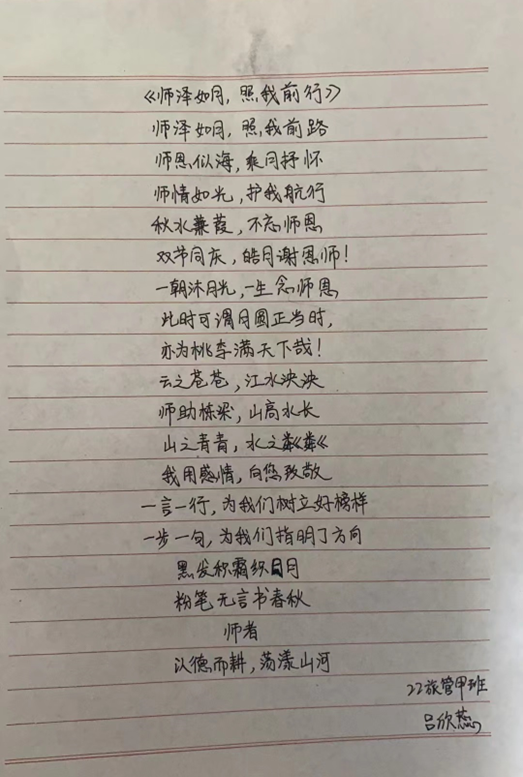 《师泽如月，照我前行》
师泽如月，照我前路
师恩似海，乘月抒怀
师情如光，护我航行
秋水蒹葭，不忘师恩
双节同庆，皓月谢恩师！
一朝沐月光，一生念师恩
此时可谓月圆正当时，
亦为桃李满天下哉！
云之苍苍，江水泱泱
师助栋梁，山高水长
山之青青，水之粼粼
我用感情，向您致敬
一言一行，为我们树立好榜样
一步一句，为我们指明了方向
黑发积霜织日月
粉笔无言书春秋
师者
以德而耕，荡漾山河
22旅管甲班
吕欣蕊